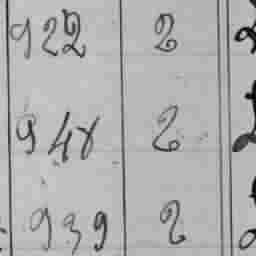 922 2
948 2
939 2